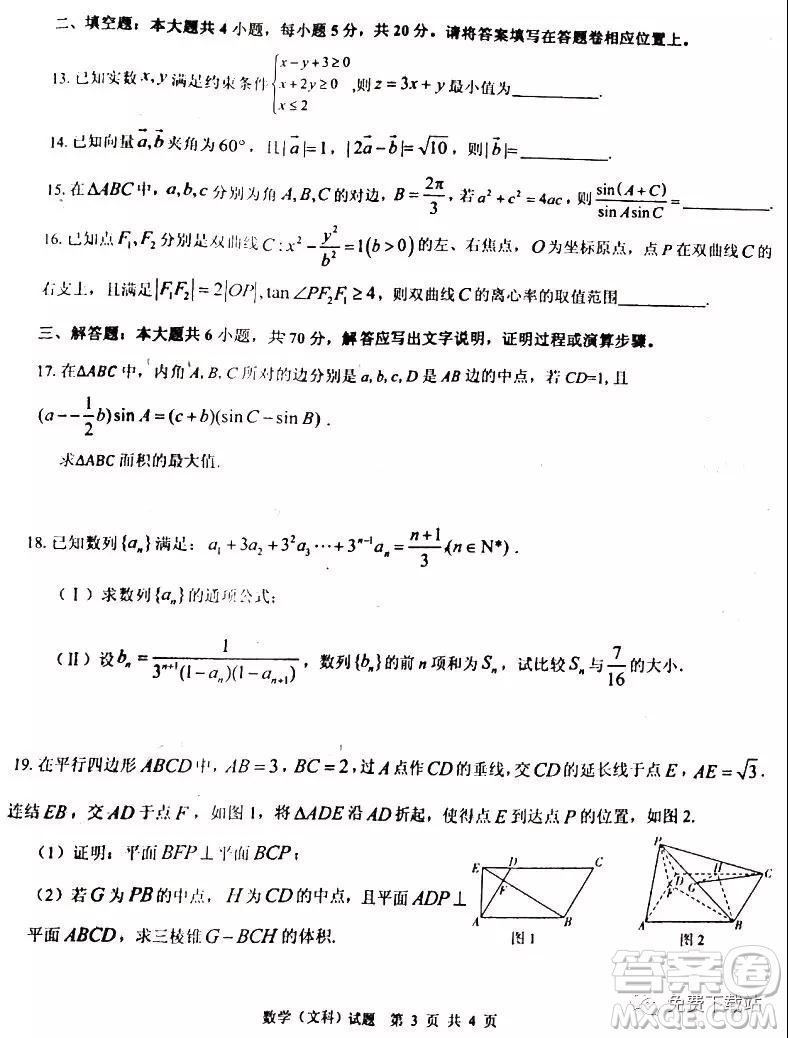 二、填空题：本大题共 4 小题，每小题 5 分，共 20 分。请将答案填写在答题卷相应位置上。
13. 已知实数 x, y 满足约束条件 { x−y+3≥0, x+2y≥0, x≤2 ,则 z=3x+y 最小值为________.
14. 已知向量 a⃗,b⃗ 夹角为 60°，且|a⃗|=1，|2a⃗−b⃗|=√10，则|b⃗|=________.
15. 在 ΔABC 中，a,b,c 分别为角 A,B,C 的对边，B=2π/3，若 a²+c²=4ac，则 sin(A+C)/(sinAsinC)=________.
16. 已知点 F₁,F₂ 分别是双曲线 C:x²−y²/b²=1(b>0) 的左、右焦点，O 为坐标原点，点 P 在双曲线 C 的
右支上，且满足|F₁F₂|=2|OP|,tan∠PF₂F₁≥4，则双曲线 C 的离心率的取值范围________.
三、解答题：本大题共 6 小题，共 70 分，解答应写出文字说明，证明过程或演算步骤。
17. 在ΔABC 中，内角 A, B, C 所对的边分别是 a,b,c, D 是 AB 边的中点，若 CD=1, 且
(a−−1/2b)sin A=(c+b)(sin C−sin B) .
求ΔABC 面积的最大值.
18. 已知数列{aₙ}满足：a₁+3a₂+3²a₃…+3ⁿ⁻¹aₙ=(n+1)/3,(n∈N*) .
（Ⅰ）求数列{aₙ}的通项公式;
（II）设 bₙ=1/(3ⁿ⁺¹(1−aₙ)(1−aₙ₊₁))，数列{bₙ}的前 n 项和为 Sₙ，试比较 Sₙ 与 7/16 的大小.
19. 在平行四边形 ABCD 中，AB=3，BC=2，过 A 点作 CD 的垂线，交 CD 的延长线于点 E，AE=√3.
连结 EB，交 AD 于点 F，如图 1，将 ΔADE 沿 AD 折起，使得点 E 到达点 P 的位置，如图 2.
（1）证明：平面 BFP⊥平面 BCP；
（2）若 G 为 PB 的中点，H 为 CD 的中点，且平面 ADP⊥
平面 ABCD，求三棱锥 G−BCH 的体积.
E D C
F
A B
图 1
P
H
D C
G
F
A B
图 2
答案卷
免费下载站
数学（文科）试题 第 3 页 共 4 页